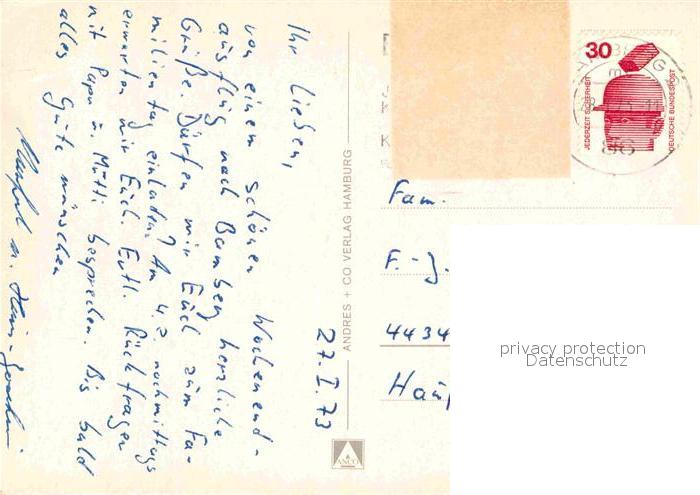 27. I. 73
Ihr Lieben,
von einem schönen Wochenend-
ausflug nach Bamberg herzliche
Grüße. Dürfen wir Euch zum Fa-
milientag einladen? Am 4.2. nachmittags
erwarten wir Euch. Evtl. Rückfragen
mit Papa u. Mutti besprechen. Bis bald
alles Gute wünschen
u. Hans-Joachim
ANDRES + CO VERLAG HAMBURG
ANCO
30
JEDERZEIT SICHERHEIT
DEUTSCHE BUNDESPOST
Fam.
F.-J.
4434
Hau
privacy protection
Datenschutz